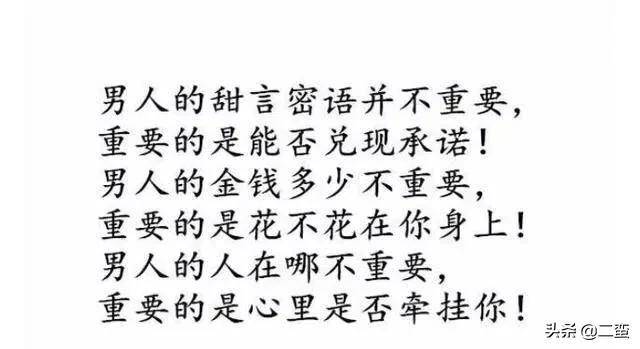 男人的甜言密语并不重要，
重要的是能否兑现承诺！
男人的金钱多少不重要，
重要的是花不花在你身上！
男人的人在哪不重要，
重要的是心里是否牵挂你！
头条 @二蛮